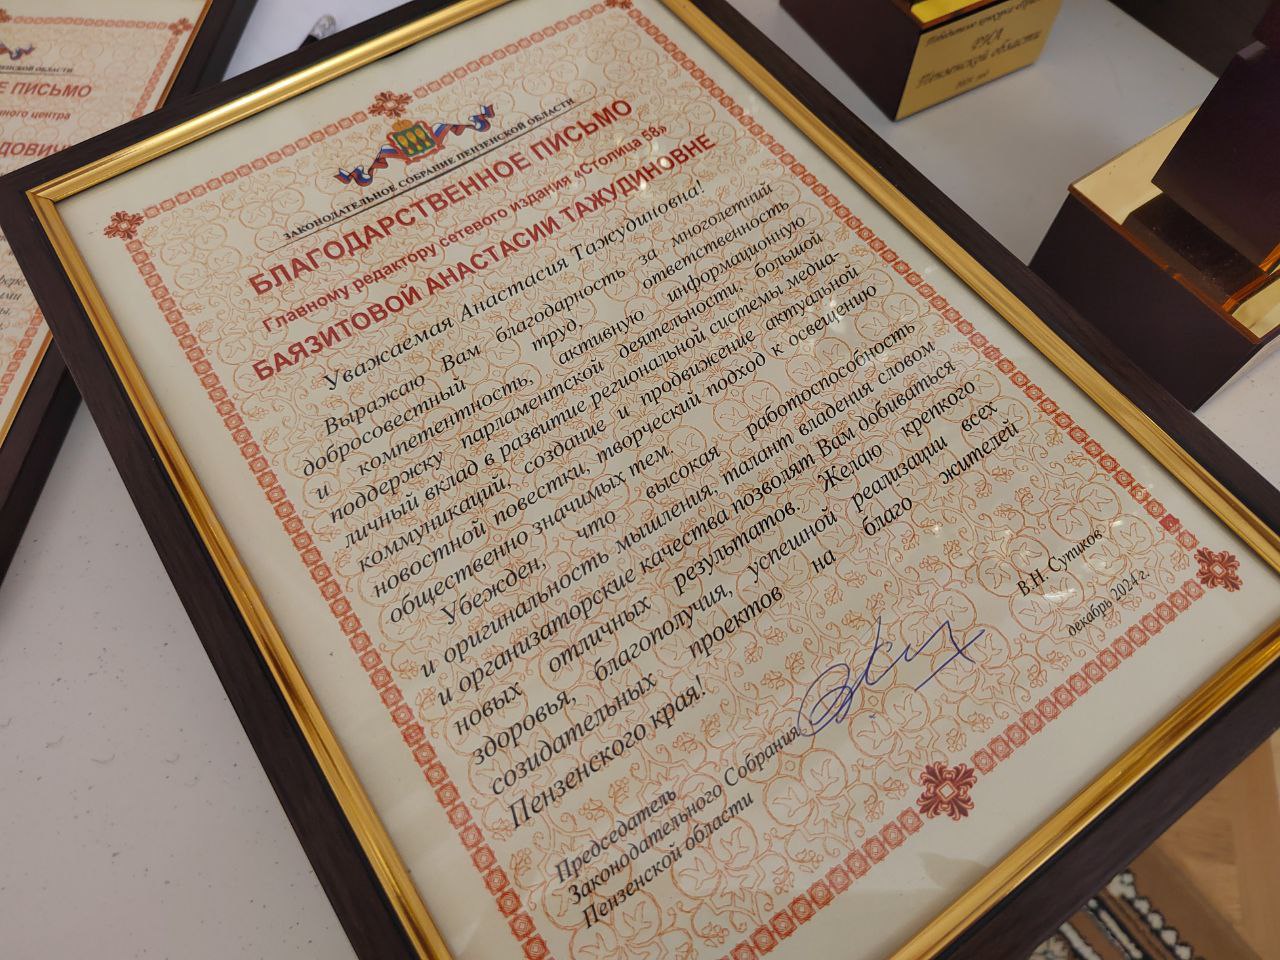 ЗАКОНОДАТЕЛЬНОЕ СОБРАНИЕ ПЕНЗЕНСКОЙ ОБЛАСТИ
БЛАГОДАРСТВЕННОЕ ПИСЬМО
Главному редактору сетевого издания «Столица 58»
БАЯЗИТОВОЙ АНАСТАСИИ ТАЖУДИНОВНЕ
Уважаемая Анастасия Тажудиновна!
Выражаю Вам благодарность за многолетний
добросовестный труд, ответственность
и компетентность, активную информационную
поддержку парламентской деятельности, большой
личный вклад в развитие региональной системы медиа-
коммуникаций, создание и продвижение актуальной
новостной повестки, творческий подход к освещению
общественно значимых тем.
Убежден, что высокая работоспособность
и оригинальность мышления, талант владения словом
и организаторские качества позволят Вам добиваться
новых отличных результатов. Желаю крепкого
здоровья, благополучия, успешной реализации всех
созидательных проектов на благо жителей
Пензенского края!
Председатель
Законодательного Собрания
Пензенской области
В.Н. Супиков
декабрь 2024 г.
ОБЛАСТИ
Е ПИСЬМО
ного центра
ДОВИЧ
Пензенской области